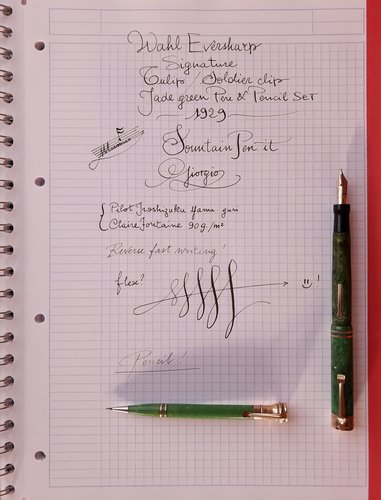 Wahl Eversharp
Signature
Tulip / Soldier clip
Jade green Pen & Pencil SET
1929
Fountain Pen.it
Giorgio
Pilot Iroshizuku Yama guri
Clairefontaine 90g/m²
Reverse fast writing!
flex?
Pencil!